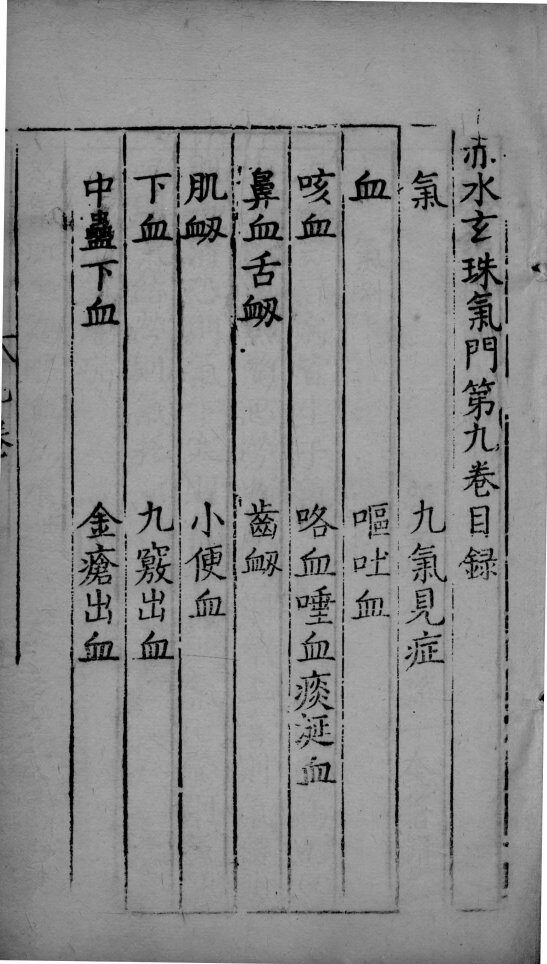 赤水玄珠氣門第九卷目録
氣　九氣見症
血　嘔吐血
咳血　咯血唾血痰涎血
鼻血舌衂　齒衂
肌衂　小便血
下血　九竅出血
中蠱下血　金瘡出血